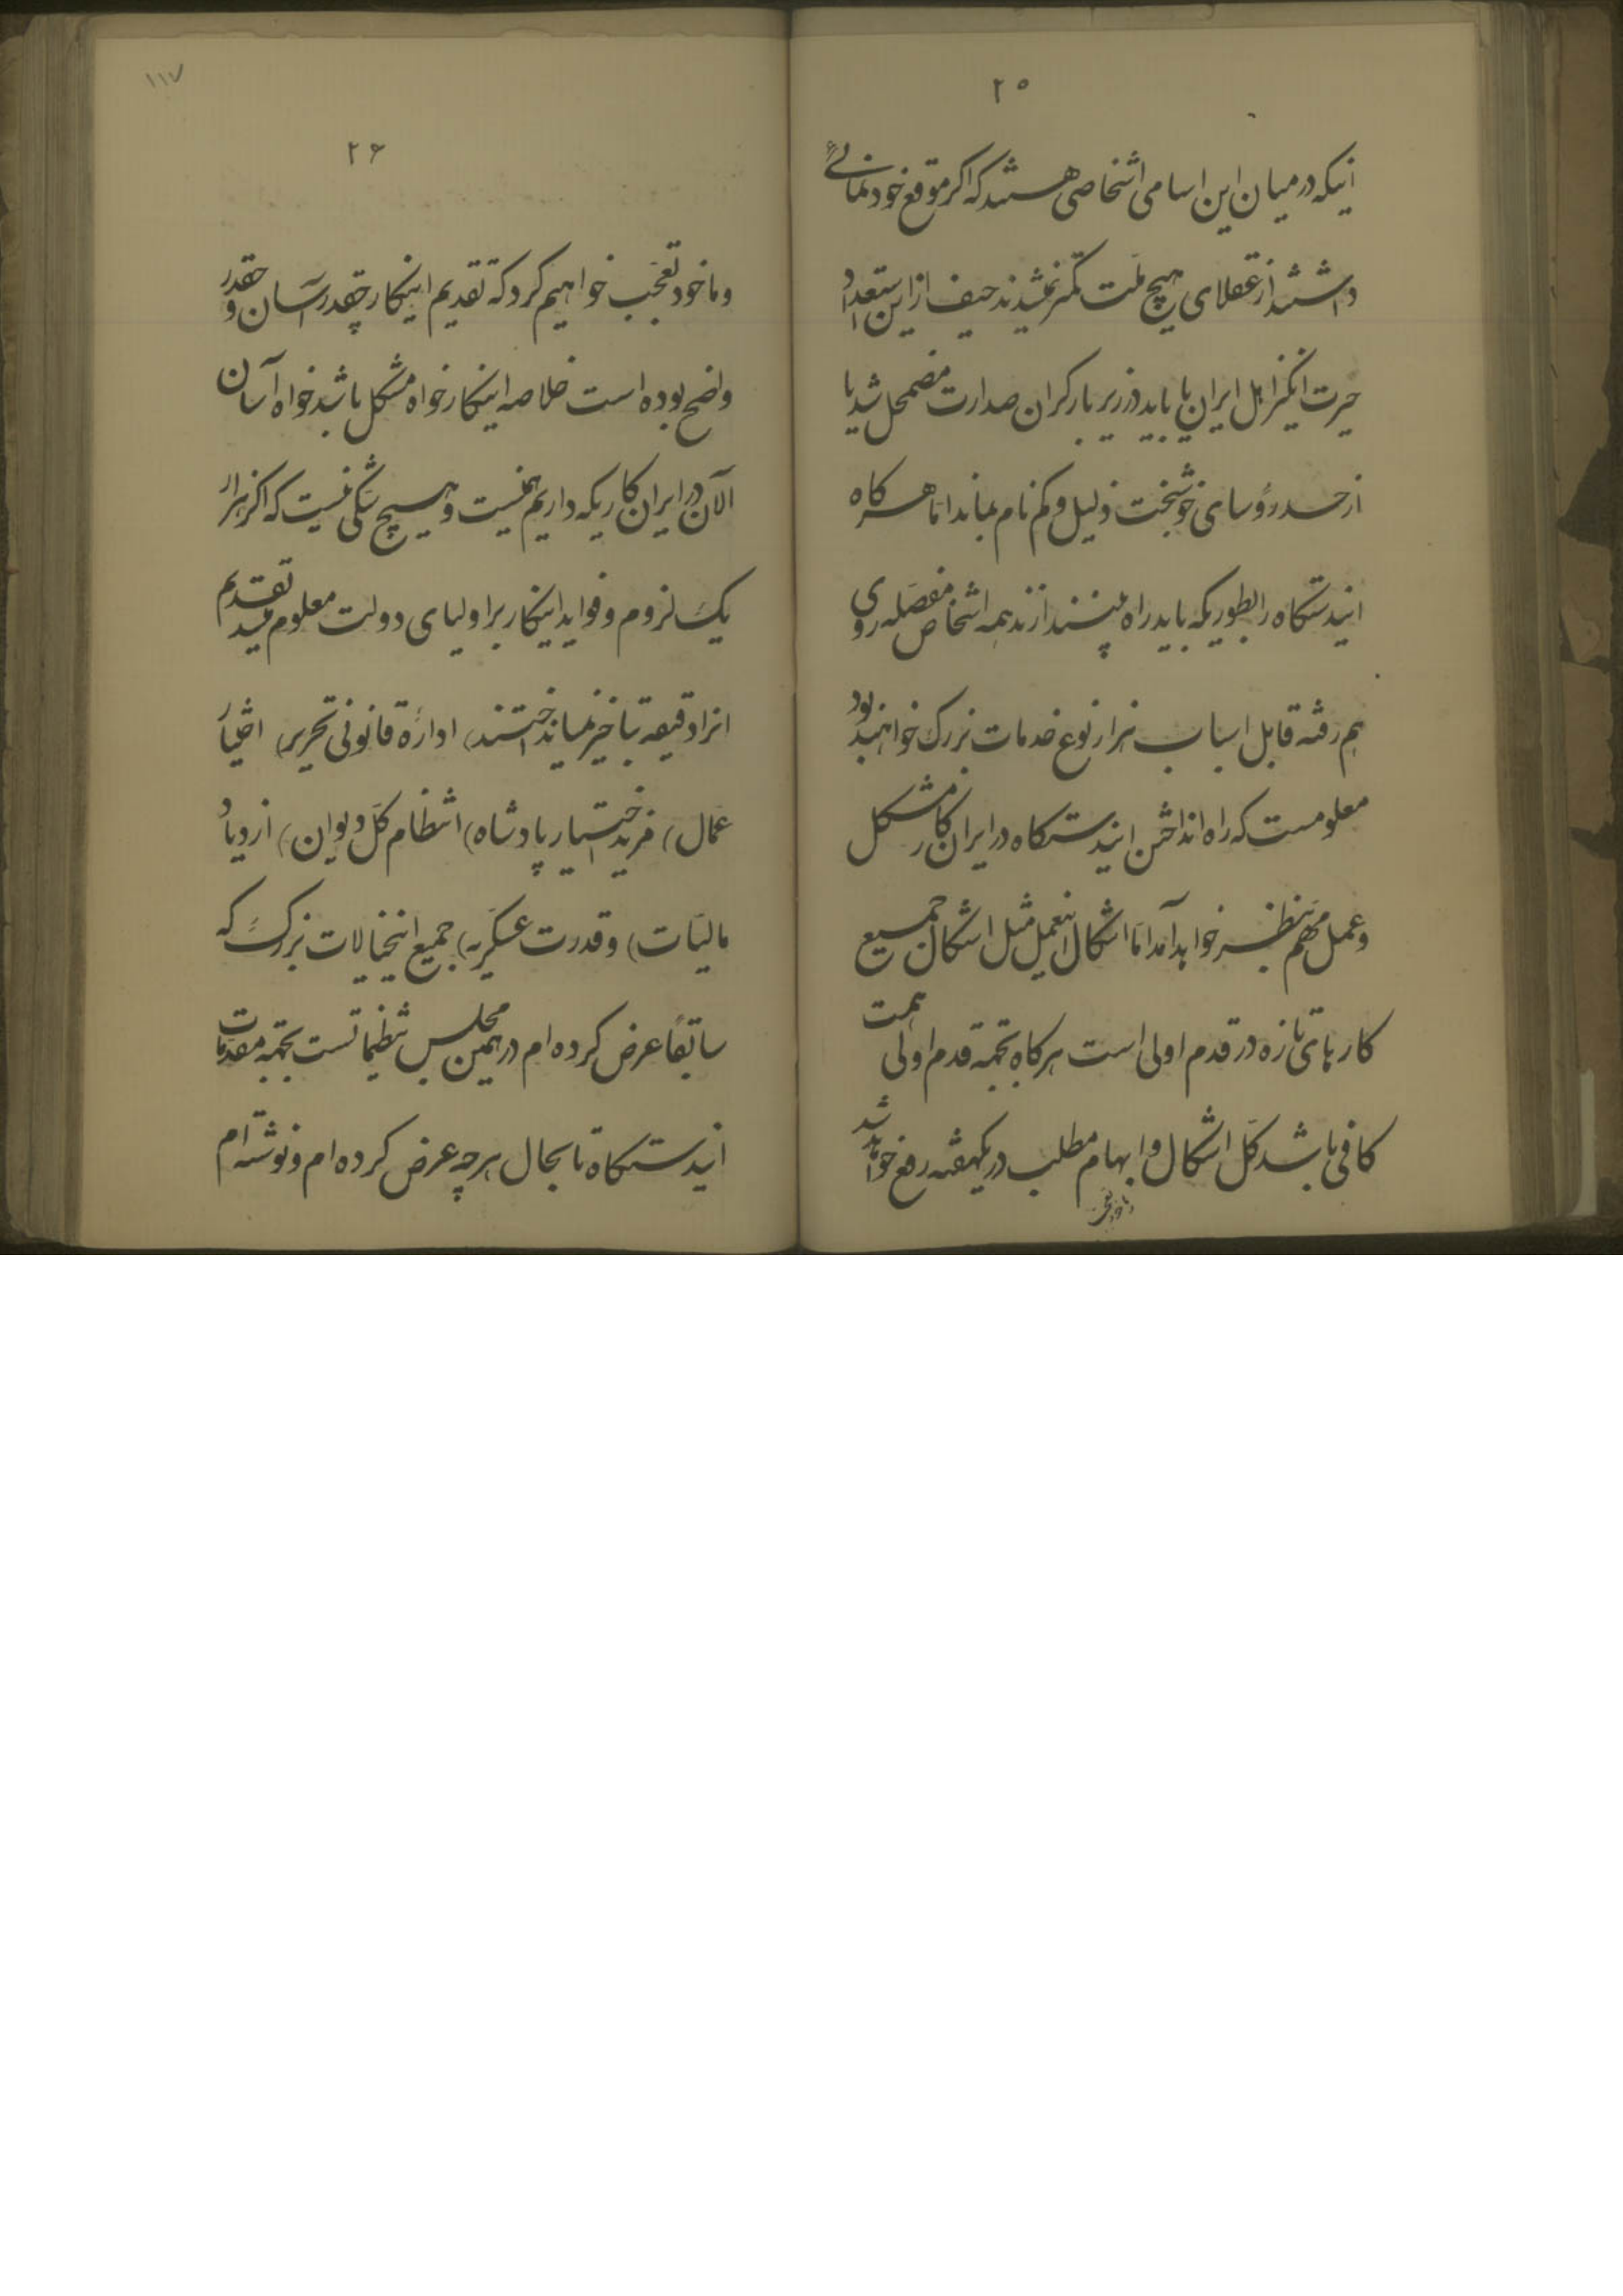 ۲۵
اینکه در میان این اسامی اشخاصی هستند که اکر موقع خودنمائی
داشتند از عقلای هیچ ملّت کمتر نمیشدند حیف از این استعداد
حیرت انکیز اهل ایران یا باید در زیر بار کران صدارت مضمحل شد یا
از حسد رؤسای خوشبخت ذلیل و کم نام بماند امّا هر کاه
ایندستکاه را بطوریکه باید راه بیندازند همه اشخاص مفصّله روی
هم رفته قابل اسباب هزار نوع خدمات بزرک خواهند بود
معلومست که راه انداختن ایندستکاه در ایران کار مشکل
و عمل مهمّ بنظر خواهد آمد امّا اشکال اینعمل مثل اشکال جمیع
کارهای تازه در قدم اولی است هر کاه بجهة قدم اولی همّت
کافی باشد کلّ اشکال و ابهام مطلب در یکهفته رفع خواهد شد
و ما خود
۱۱۷
۲۶
و ما خود تعجّب خواهیم کرد که تقدیم اینکار چقدر آسان و چقدر
واضح بوده است خلاصه اینکار خواه مشکل باشد خواه آسان
الآن در ایران کاریکه داریم همینست و هیچ شکّی نیست که اکر هزار
یک لزوم و فواید اینکار بر اولیای دولت معلوم میشد تقدیم
انرا دقیقه بتأخیر نمیانداختند) ادارهٔ قانونی تحریر) اختیار
عمّال) مزید اختیار پادشاه) انتظام کلّ دیوان) ازدیاد
مالیّات) و قدرت عسکریّه) جمیع اینخیالات بزرک که
سابقاً عرض کرده‌ام در همین مجلس تنظیماتست بجهة مقدّمات
ایندستکاه تا بحال هر چه عرض کرده‌ام و نوشته‌ام